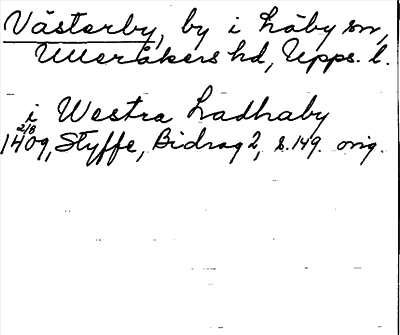 Västerby, by i Läby sn,
Ulleråkers hd, Upps. l.
i Westra Ladhaby
1409 2/8, Styffe, Bidrag 2, s. 149. orig.